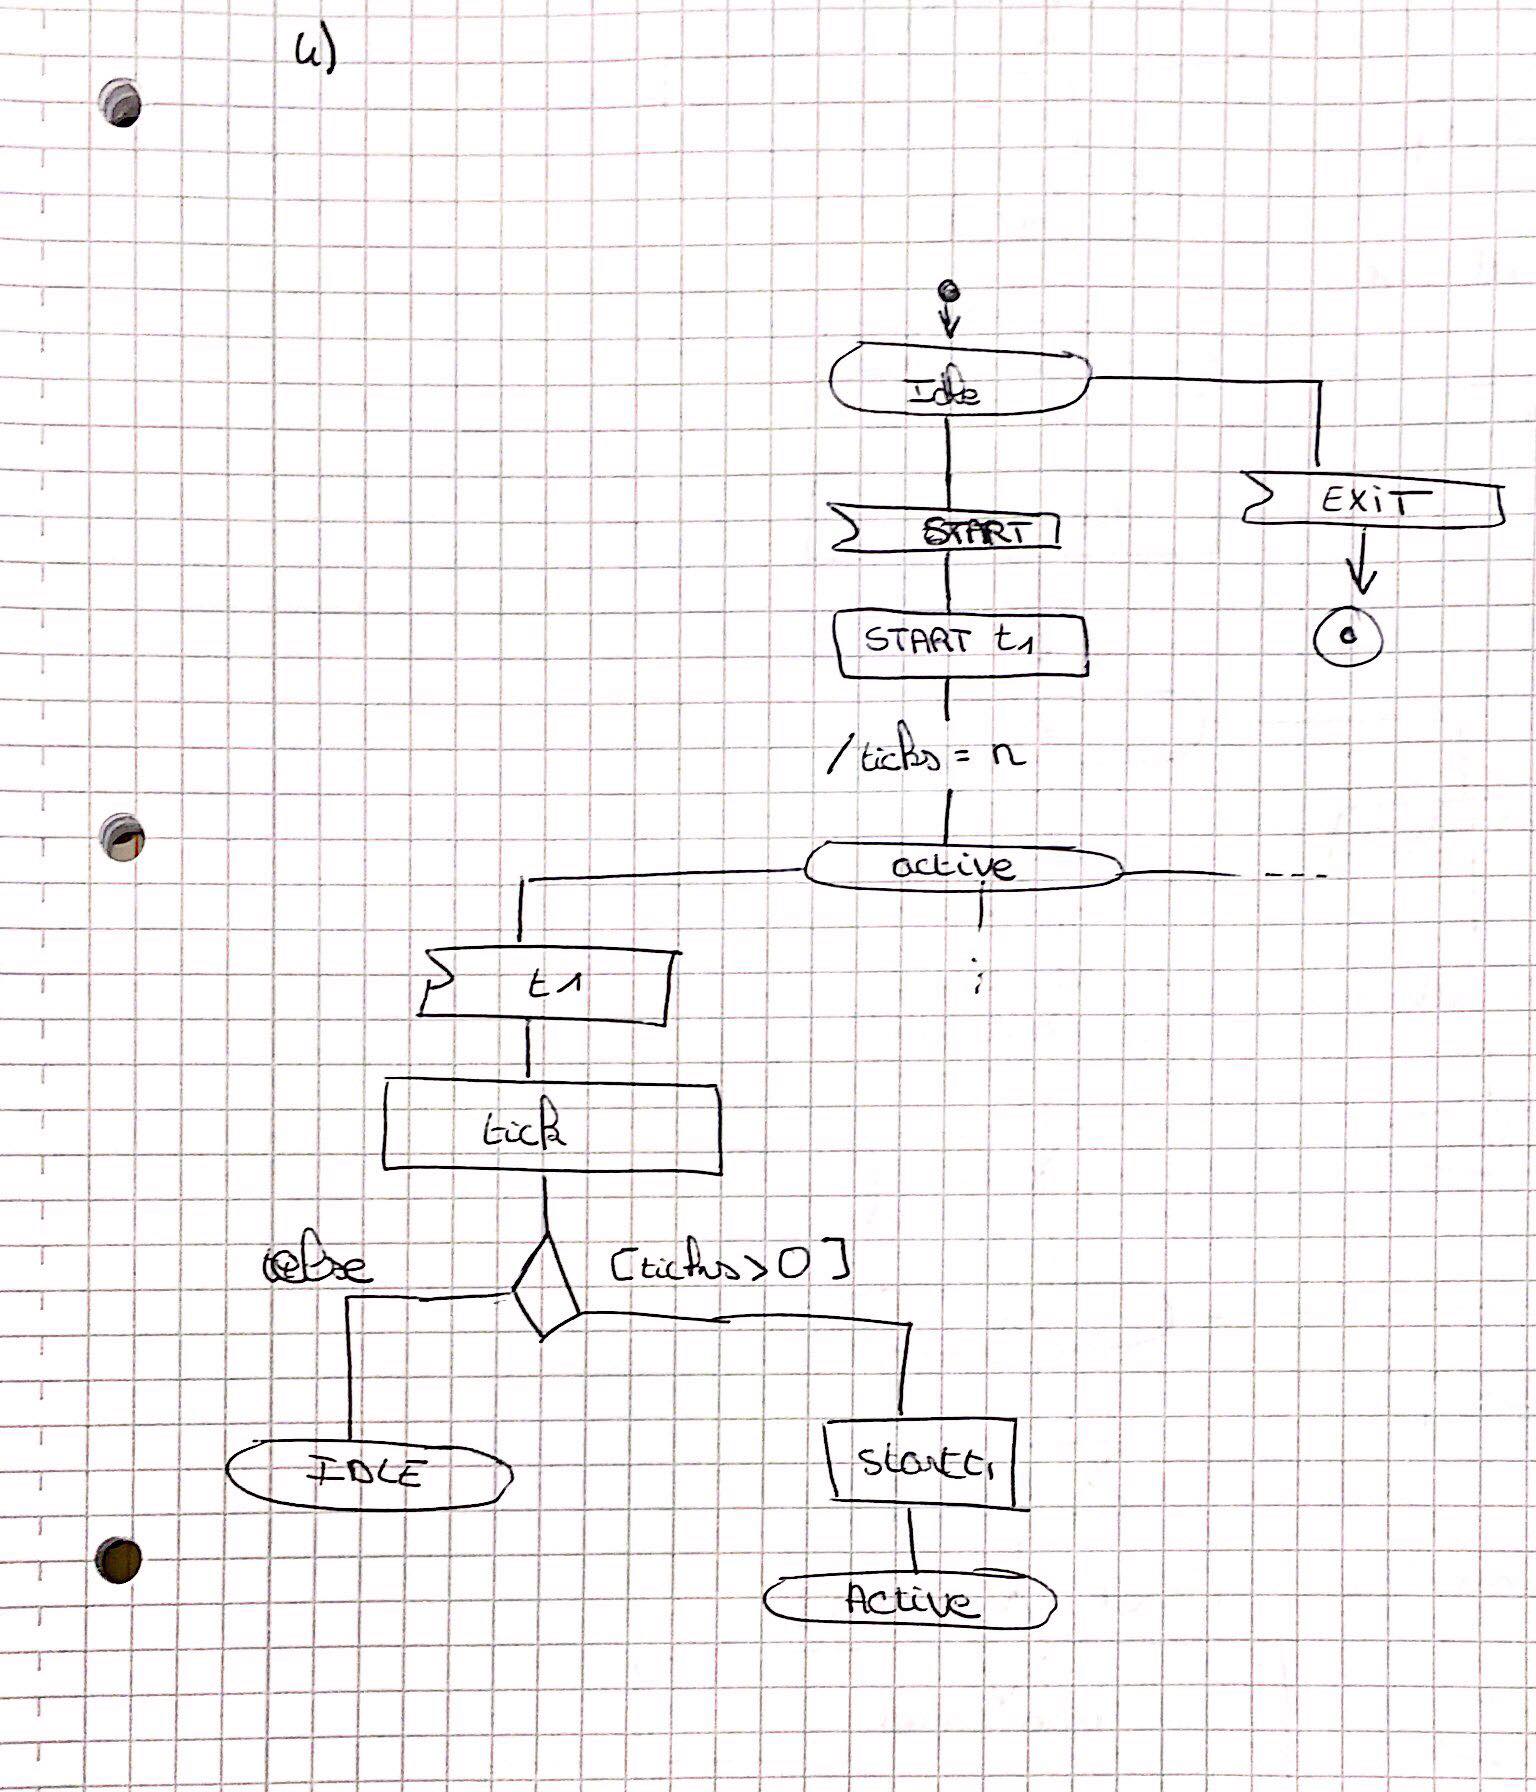 4)
Idle
EXiT
START
START t1
/ticks = n
active
t1
tick
else
[ticks>0]
IDLE
start t1
Active